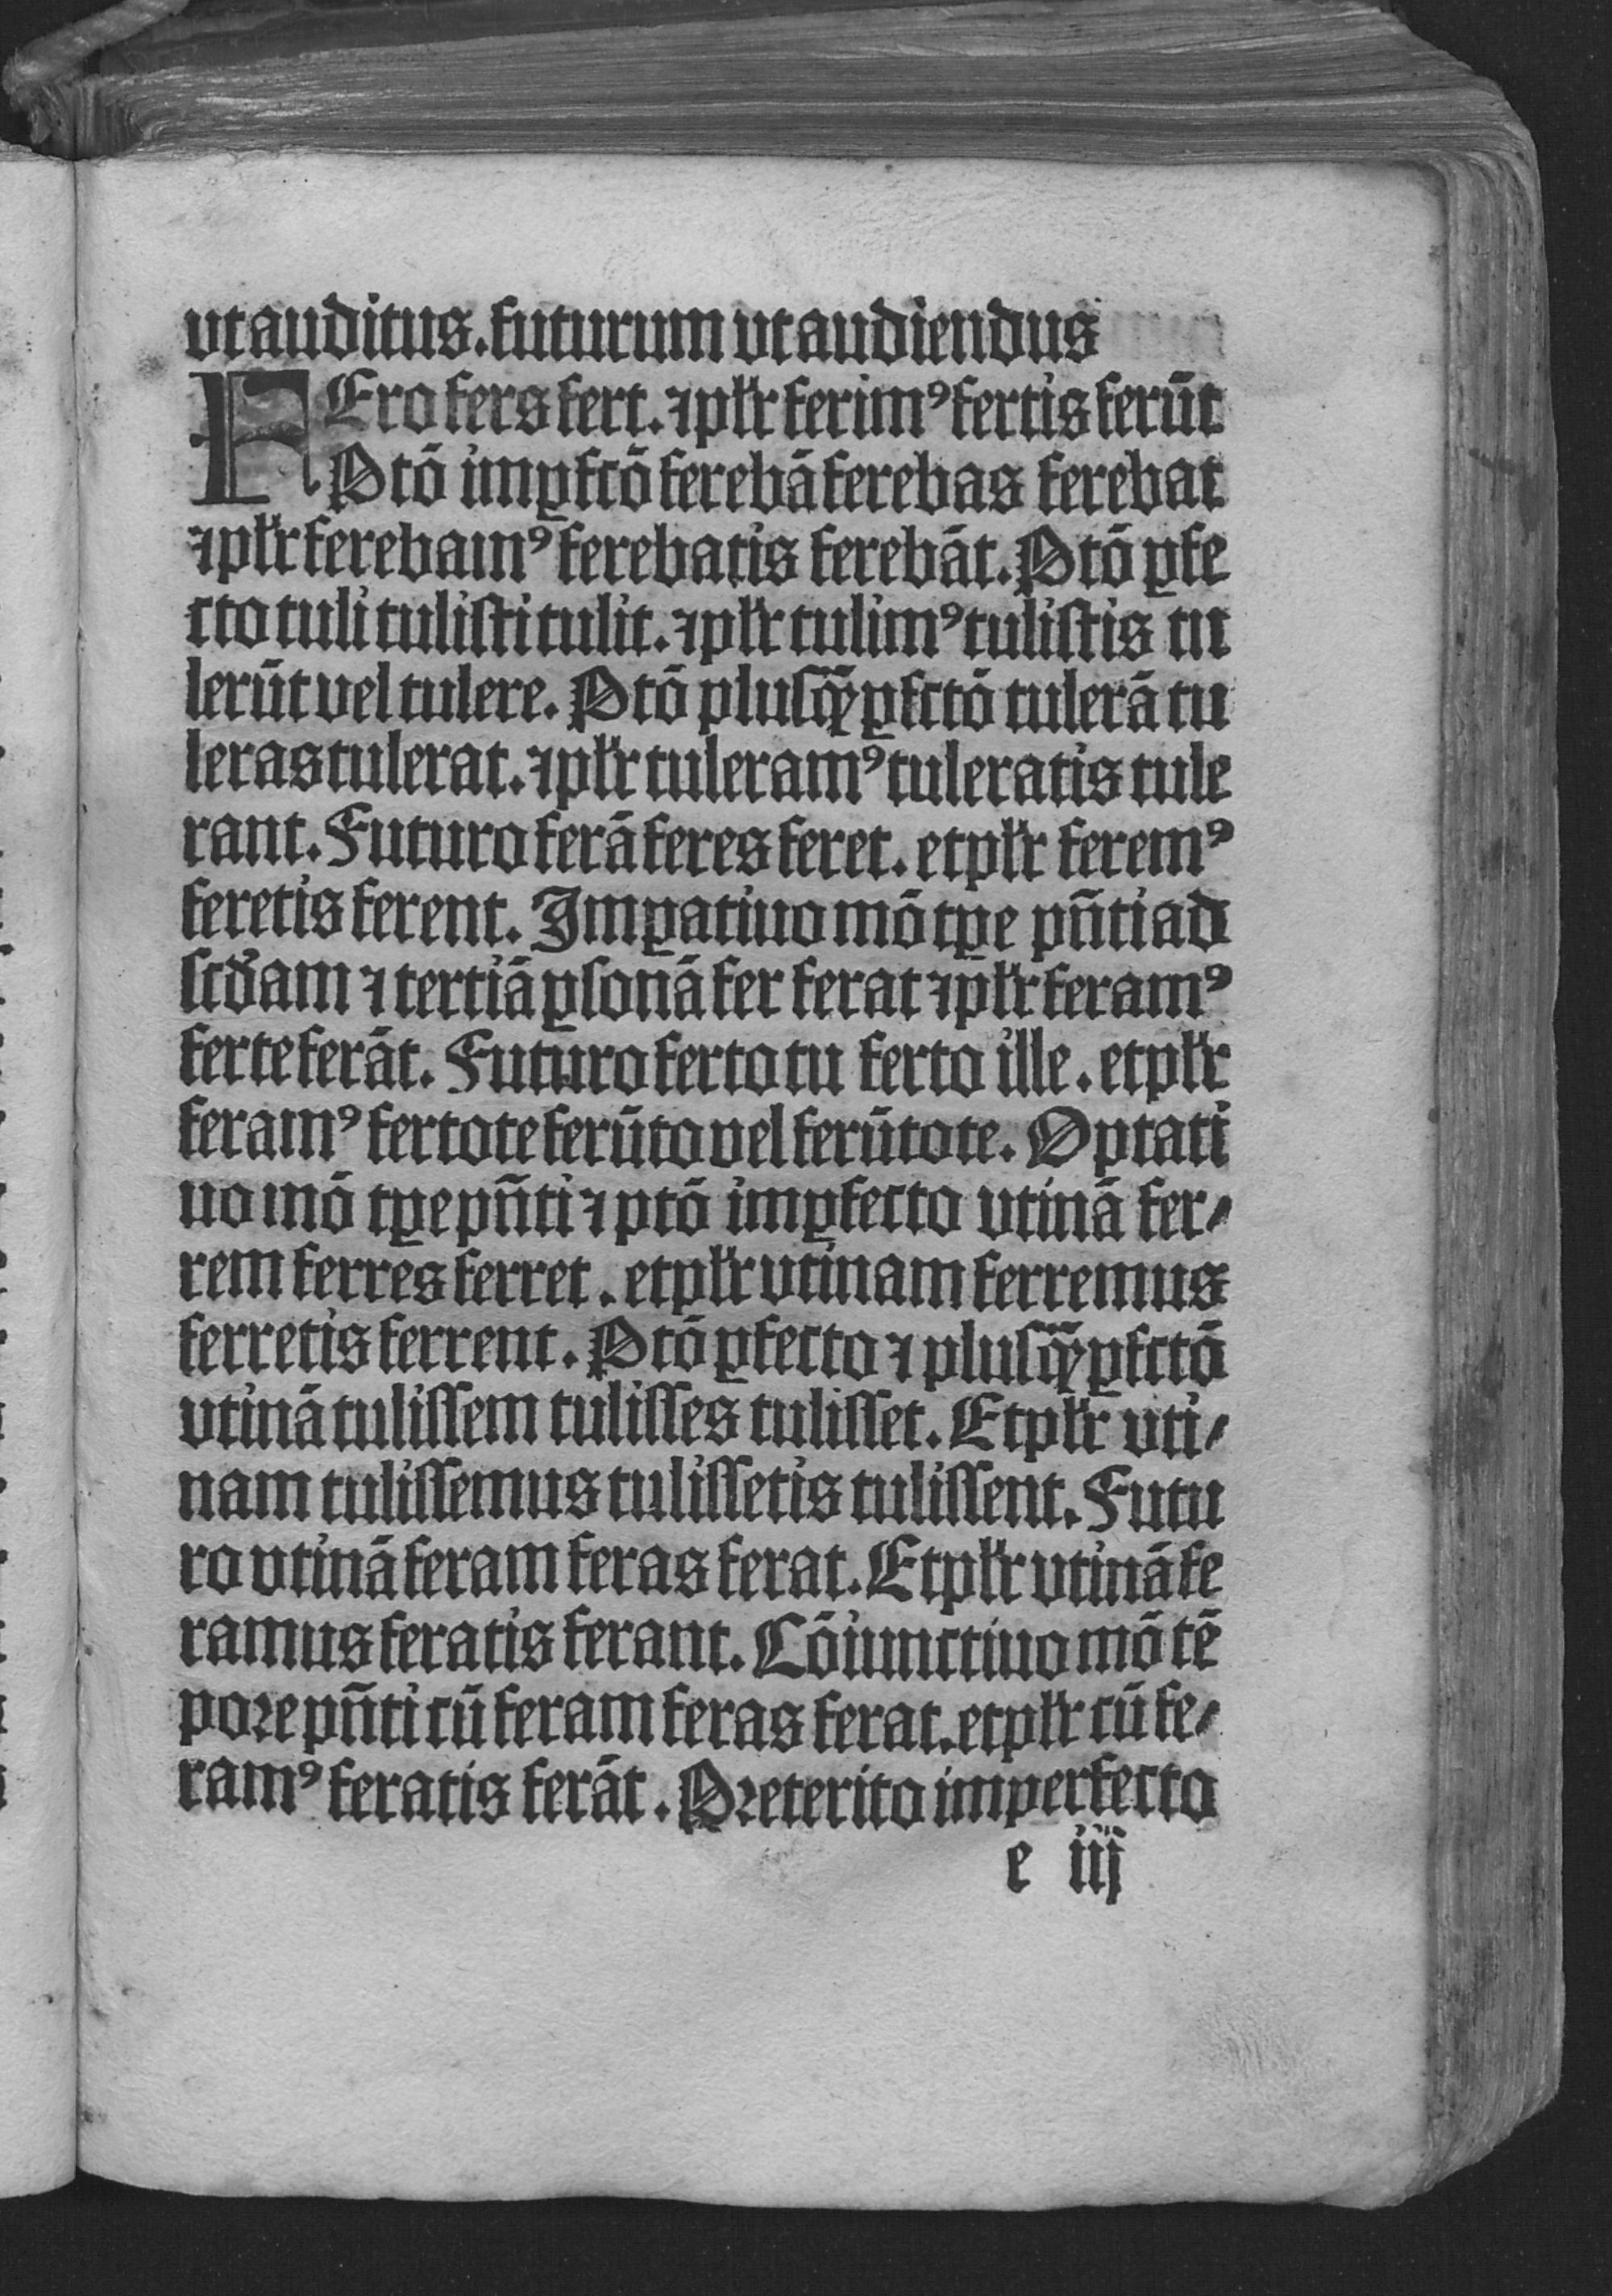 vt auditus. futurum vt audiendus
FEro fers fert. ⁊ pl̃r ferimꝰ fertis ferūt
Ptō imꝑfctō ferebā ferebas ferebat
⁊ pl̃r ferebamꝰ ferebatis ferebāt. Ptō ꝑfe
cto tuli tulisti tulit. ⁊ pl̃r tulimꝰ tulistis tu
lerūt vel tulere. Ptō plusq̃ꝑfctō tulerā tu
leras tulerat. ⁊ pl̃r tuleramꝰ tuleratis tule
rant. Futuro ferā feres feret. et pl̃r feremꝰ
feretis ferent. Imꝑatiuo mō tꝑe pñti ad
scd̃am ⁊ tertiā ꝑsonā fer ferat ⁊ pl̃r feramꝰ
ferte ferāt. Futuro ferto tu ferto ille. et pl̃r
feramꝰ fertote ferūto vel ferūtote. Optati
uo mō tꝑe pñti ⁊ ptō imꝑfecto vtinā fer⸗
rem ferres ferret. et pl̃r vtinam ferremus
ferretis ferrent. Ptō ꝑfecto ⁊ plusq̃ꝑfctō
vtinā tulissem tulisses tulisset. Et pl̃r vti⸗
nam tulissemus tulissetis tulissent. Futu
ro vtinā feram feras ferat. Et pl̃r vtinā fe
ramus feratis ferant. Cōiunctiuo mō tē
pore pñti cū feram feras ferat. et pl̃r cū fe⸗
ramꝰ feratis ferāt. Preterito imperfecto
e iij